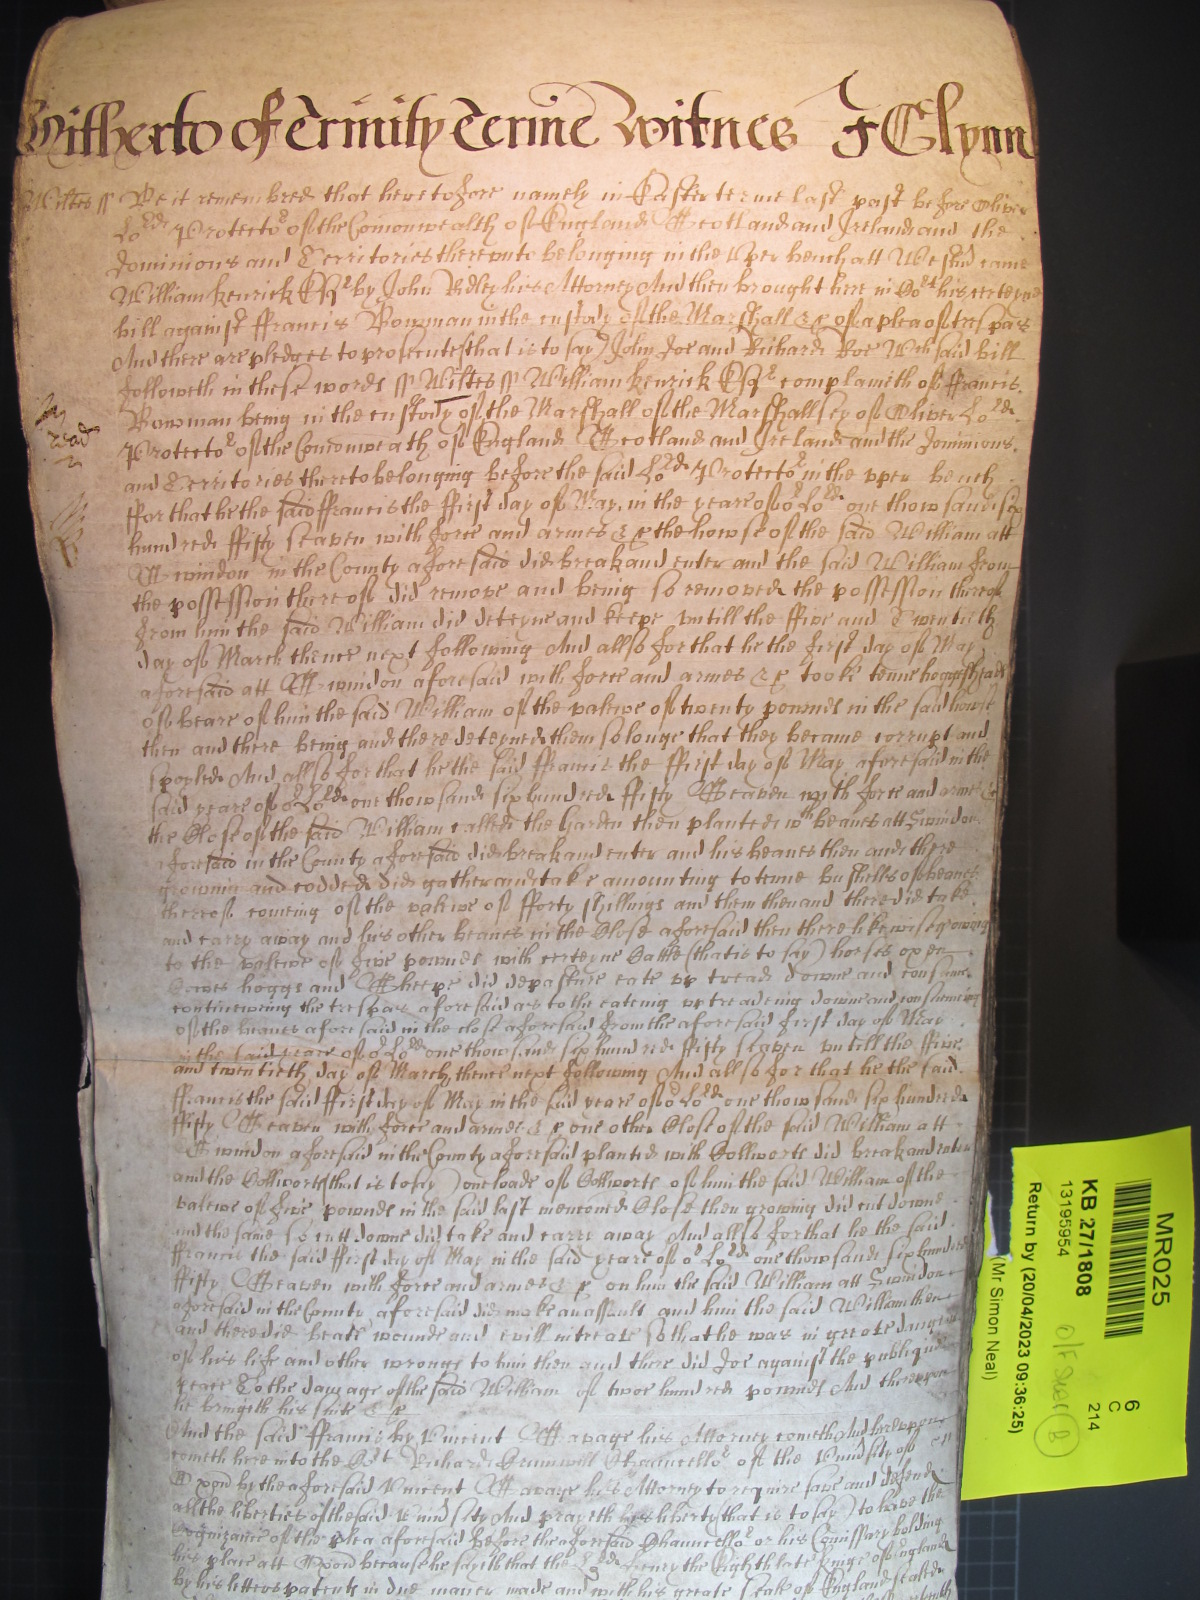 Witherto of Trinity Terme Witnes J Glynn
Wiltes ss Be it remembred that heretofore namely in Easter terme last past before Oliver
Lord Protector of the Comonwealth of England Scotland and Ireland and the
dominions and Territories thereunto belonging in the Vper bench att Westm came
William Kenrick Esqr by John Ridley his Attorney And then brought here in Cort his certeyne
bill against ffrancis Bowman in the custody of the Marshall &c of a plea of trespas
And there are pledges to prosecute (that is to say) John Doe and Richard Roe Wch said bill
followeth in these words ss Wiltes ss William Kenrick Esqr complaineth of ffrancis
Bowman being in the custody of the Marshall of the Marshallsey of Oliver Lord
Protector of the Comonweath of England Scotland and Ireland and the Dominions
and Territories thereto belonging before the said Lord Protector in the vpper bench
ffor that he the said ffrancis the ffirst day of May in the yeare of or Lord one thowsand six
hundred ffifty seaven with force and armes &c the howse of the said William att
Swindon in the County aforesaid did break and enter and the said William from
the possession thereof did remove and being so removed the possession thereof
from him the said William did deteyne and keepe vntill the ffive and Twentieth
day of March thence next following And allso for that he the first day of May
aforesaid att Swindon aforesaid with force and armes &c tooke tenne hoggesheads
of beare of him the said William of the valewe of twenty pownds in the said howse
then and there being and there deteyned them so longe that they became corrupt and
spoyled And allso for that he the said ffrancis the ffirst day of May aforesaid in the
said yeare of or Lord one thowsand six hundred ffifty Seaven with force and armes &c
the Close of the said William called the Garden then planted wth beanes att Swindon
aforesaid in the County aforesaid did break and enter and his beanes then and there
growing and codded did gather and take amounting to tenne bushells of beanes
thereof coming of the valewe of fforty shillings and them then and there did take
and carry away and his other beanes in the Close aforesaid then there likewise growing
to the valewe of five pownds with certeyne Cattle (that is to say) horses oxen
Cowes hoggs and Sheepe did depasture eate vp tread downe and consume
continewing the trespas aforesaid as to the eateing vp treadeing downe and consumeing
of the beanes aforesaid in the close aforesaid from the aforesaid first day of May
in the said yeare of or Lord one thowsand six hundred ffifty seaven vntill the ffive
and twentieth day of March thence next following And allso for that he the said
ffrancis the said ffirst day of May in the said yeare of or Lord one thowsand six hundred
ffifty Seaven with force and armes &c one other Close of the said William att
Swindon aforesaid in the County aforesaid planted with Colliworts did break and enter
and the Colliworts (that is to say) one loade of Colliworts of him the said William of the
valewe of five pownds in the said last menconed Close then growing did cut downe
and the same so cutt downe did take and carry away And allso for that he the said
ffrancis the said ffirst day of May in the said yeare of or Lord one thowsand six hundred
ffifty Seaven with force and armes &c on him the said William att Swindon
aforesaid in the County aforesaid did make an assault and him the said William then
and there did beate wounde and evill intreate so that he was in greate danger
of his life and other wrongs to him then and there did doe against the publique
peace To the damage of the said William of twoe hundred pownds And thereupon
he bringeth his suite &c
And the said ffrancis by Vincent Savage his Attorney cometh And hereupon
cometh here into the Cort Richard Cromwell Chauncellor of the Vniversity of
Oxon by the aforesaid Vincent Savage his Attorney to require save and defend
all the liberties of the said Vniversity And prayeth his liberty (that is to say) to have the
Cognizance of the plea aforesaid before the aforesaid Chauncellor or his Comissary holding
his place att Oxon because he sayeth that the Lord Henry the Eighth late Kinge of England
by his letters patents in due maner made and with his greate Seale of England sealed
MR025
KB 27/1808
13195954
Return by (20/04/2023 09:36:25)
(Mr Simon Neal)
6
C
214